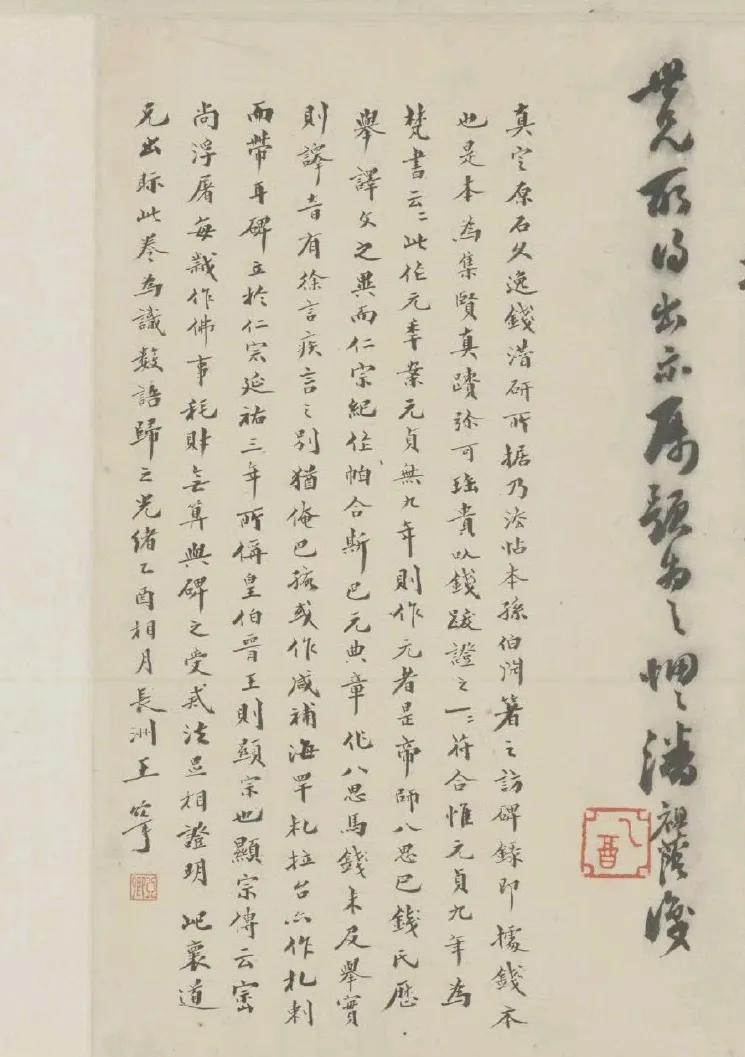 世兄所得出示属題为之惘惘潘祖蔭識
八酉
真定原石久逸錢潛研所據乃法帖本孫伯淵箸之訪碑錄即據錢本
也是本為集賢真蹟弥可珤貴以錢跋證之一二符合惟元貞九年為
梵書云二此作元年案元貞無九年則作元者是帝師八思巴錢氏歷
舉譯文之異而仁宗紀作帕合斯巴元典章作八思馬錢未及舉實
則譯音有徐言疾言之別猶俺巴孩或作咸補海罕札拉台亦作札剌
而帶耳碑立於仁宗延祐三年所稱皇伯晉王則顯宗也顯宗傳云崇
尚浮屠每歲作佛事耗財無算與碑之受戒法足相證明 此襄道
兄出际此卷為識數語歸之光緒乙酉相月長洲王